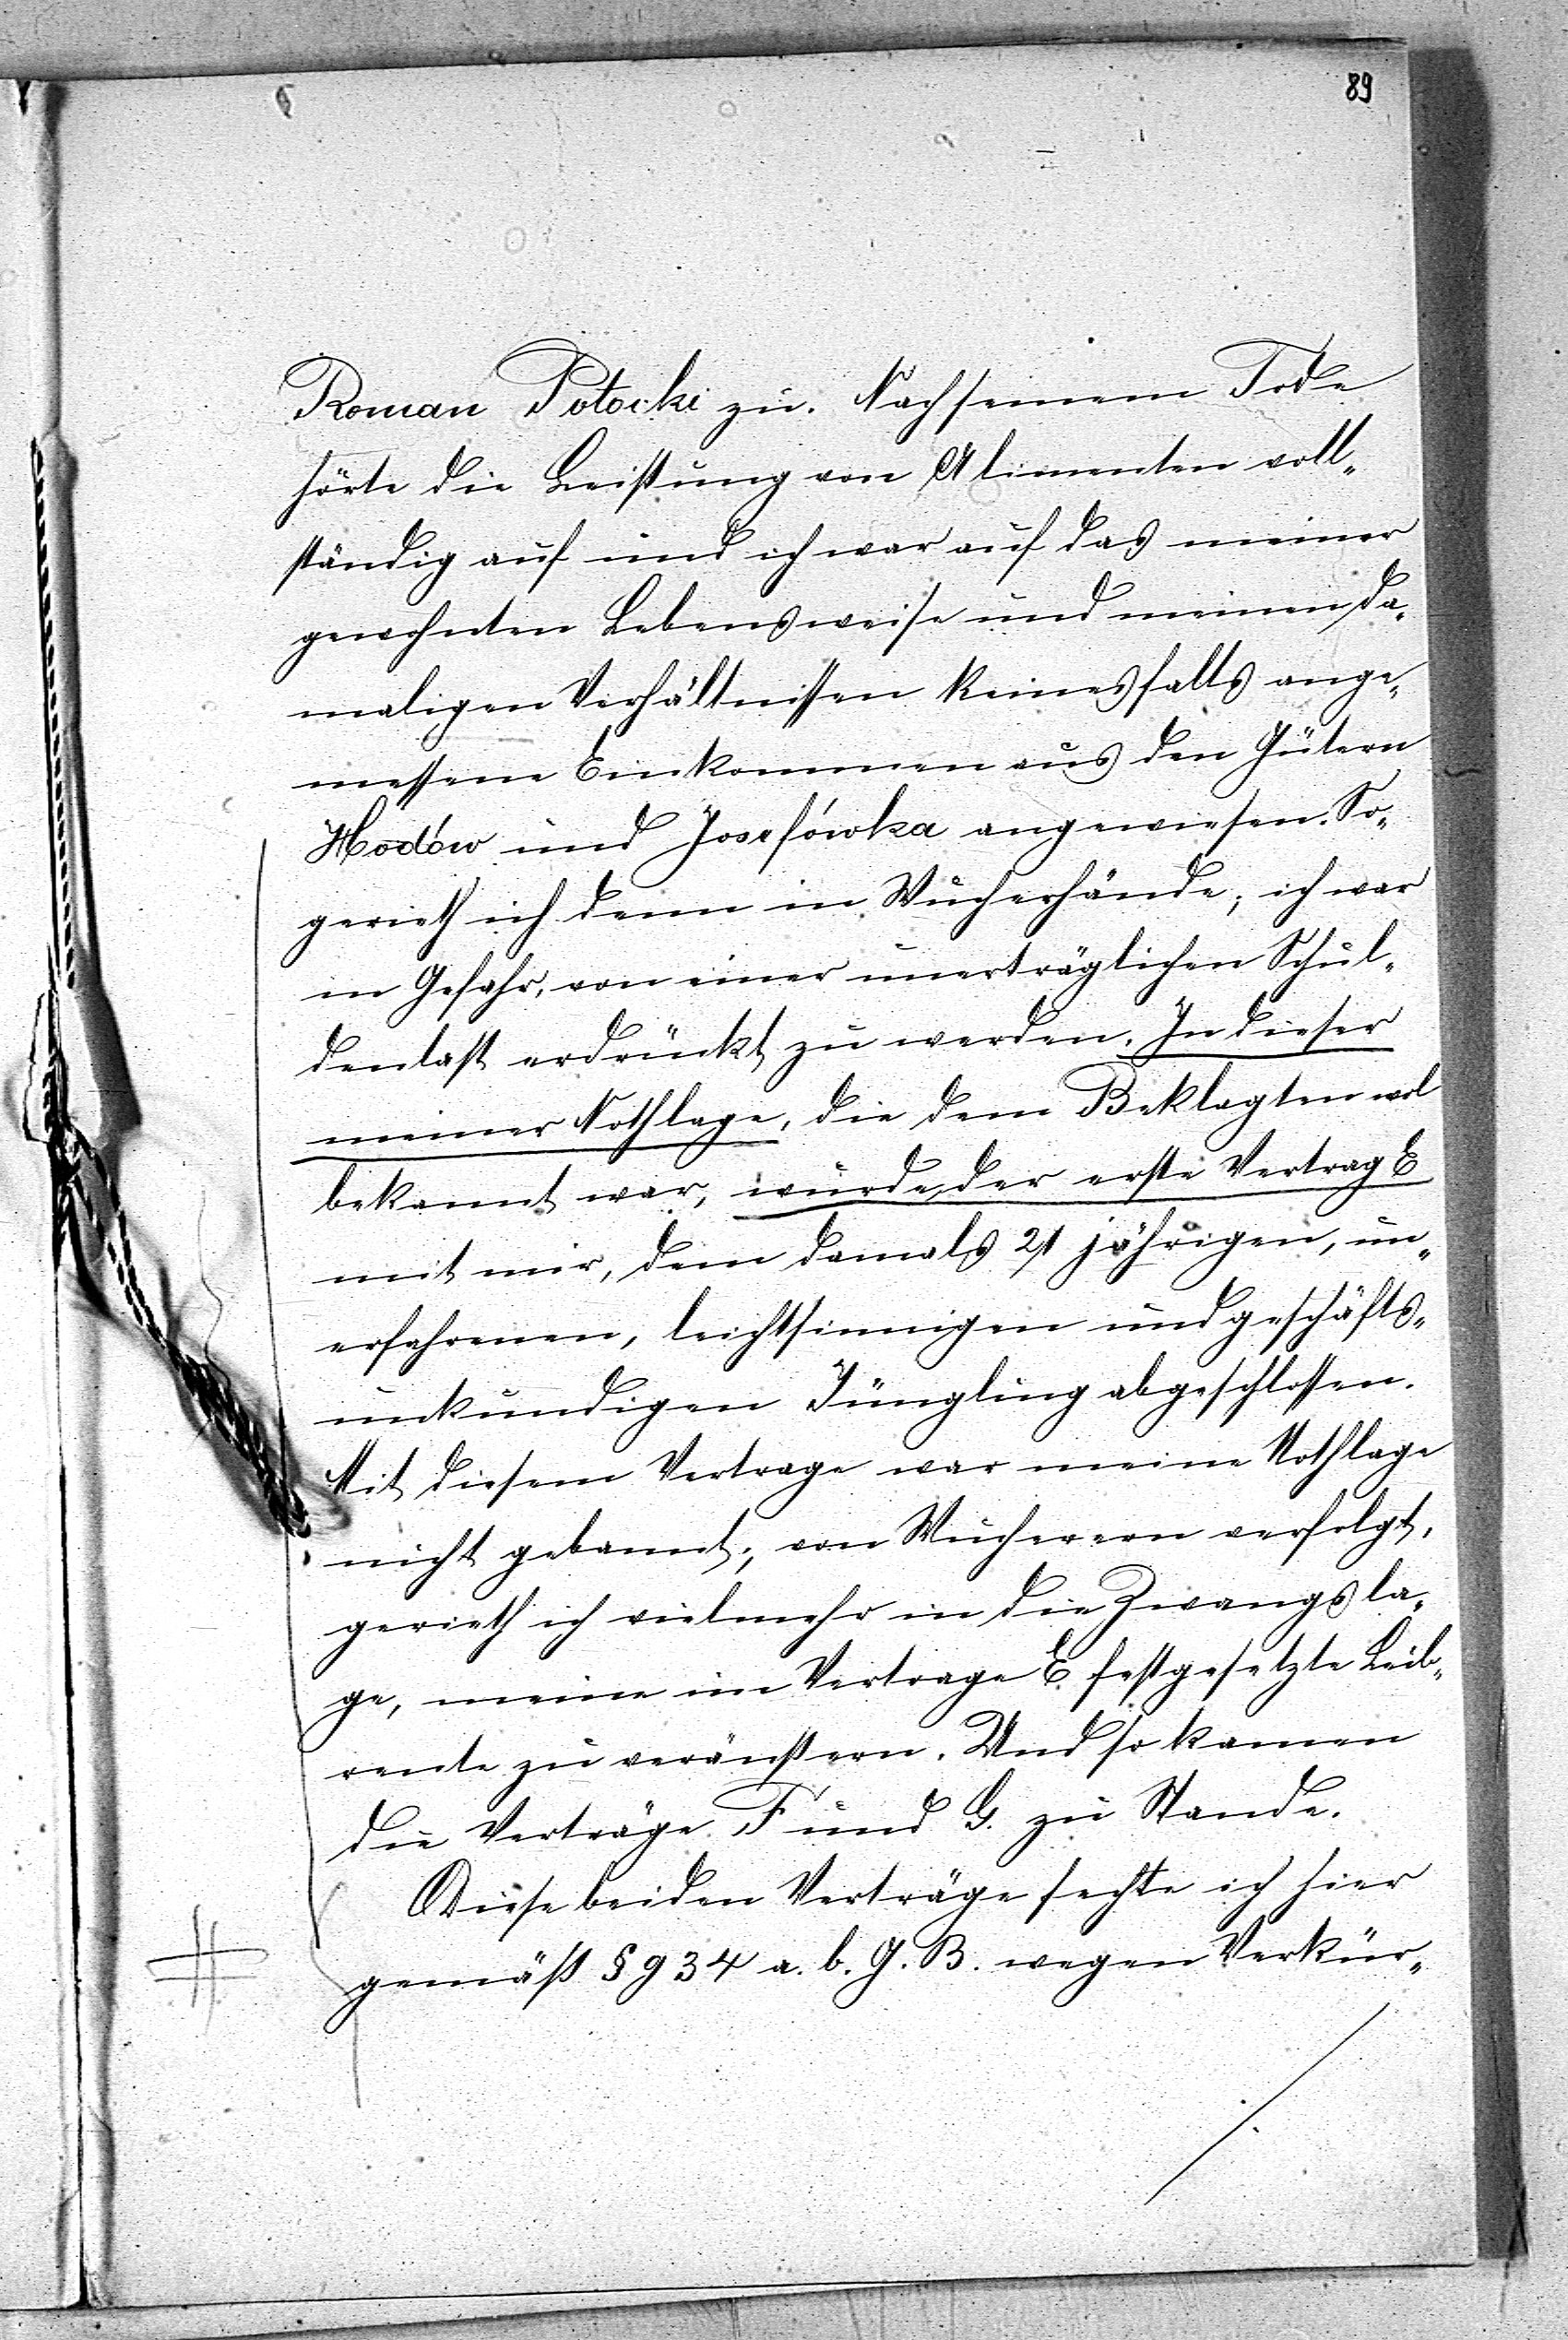 89
Roman Potocki zu. Nach seinem Tode
hörte die Leistung von Alimenten voll„
ständig auf und ich war auf das meiner
gewohnten Lebensweise und meinen da„
maligen Verhältnissen keinesfalls ange„
messene Einkommen aus den Gütern
Hodów und Josefówka angewiesen. So„
gerieth ich denn in Wucherhände; ich war
in Gefahr, von einer unerträglichen Schul„
denlast erdrückt zu werden. In dieser
meiner Nothlage, die dem Beklagten wol
bekannt war, wurde der erste Vertrag E
mit mir, dem damals 21 jährigen, un„
erfahrenen, leichtsinnigen und geschäfts„
unkundigen Jüngling abgeschlossen.
Mit diesem Vertrage war meine Nothlage
nicht gebannt; von Wucherern verfolgt,
gerieth ich vielmehr in die Zwangsla„
ge, meine im Vertrage E festgesetzte Leib„
rente zu veräußern. Und so kamen
die Verträge F und G. zu Stande.
Diese beiden Verträge fechte ich hier
gemäß § 934 a. b. G. B. wegen Verkür„
./.